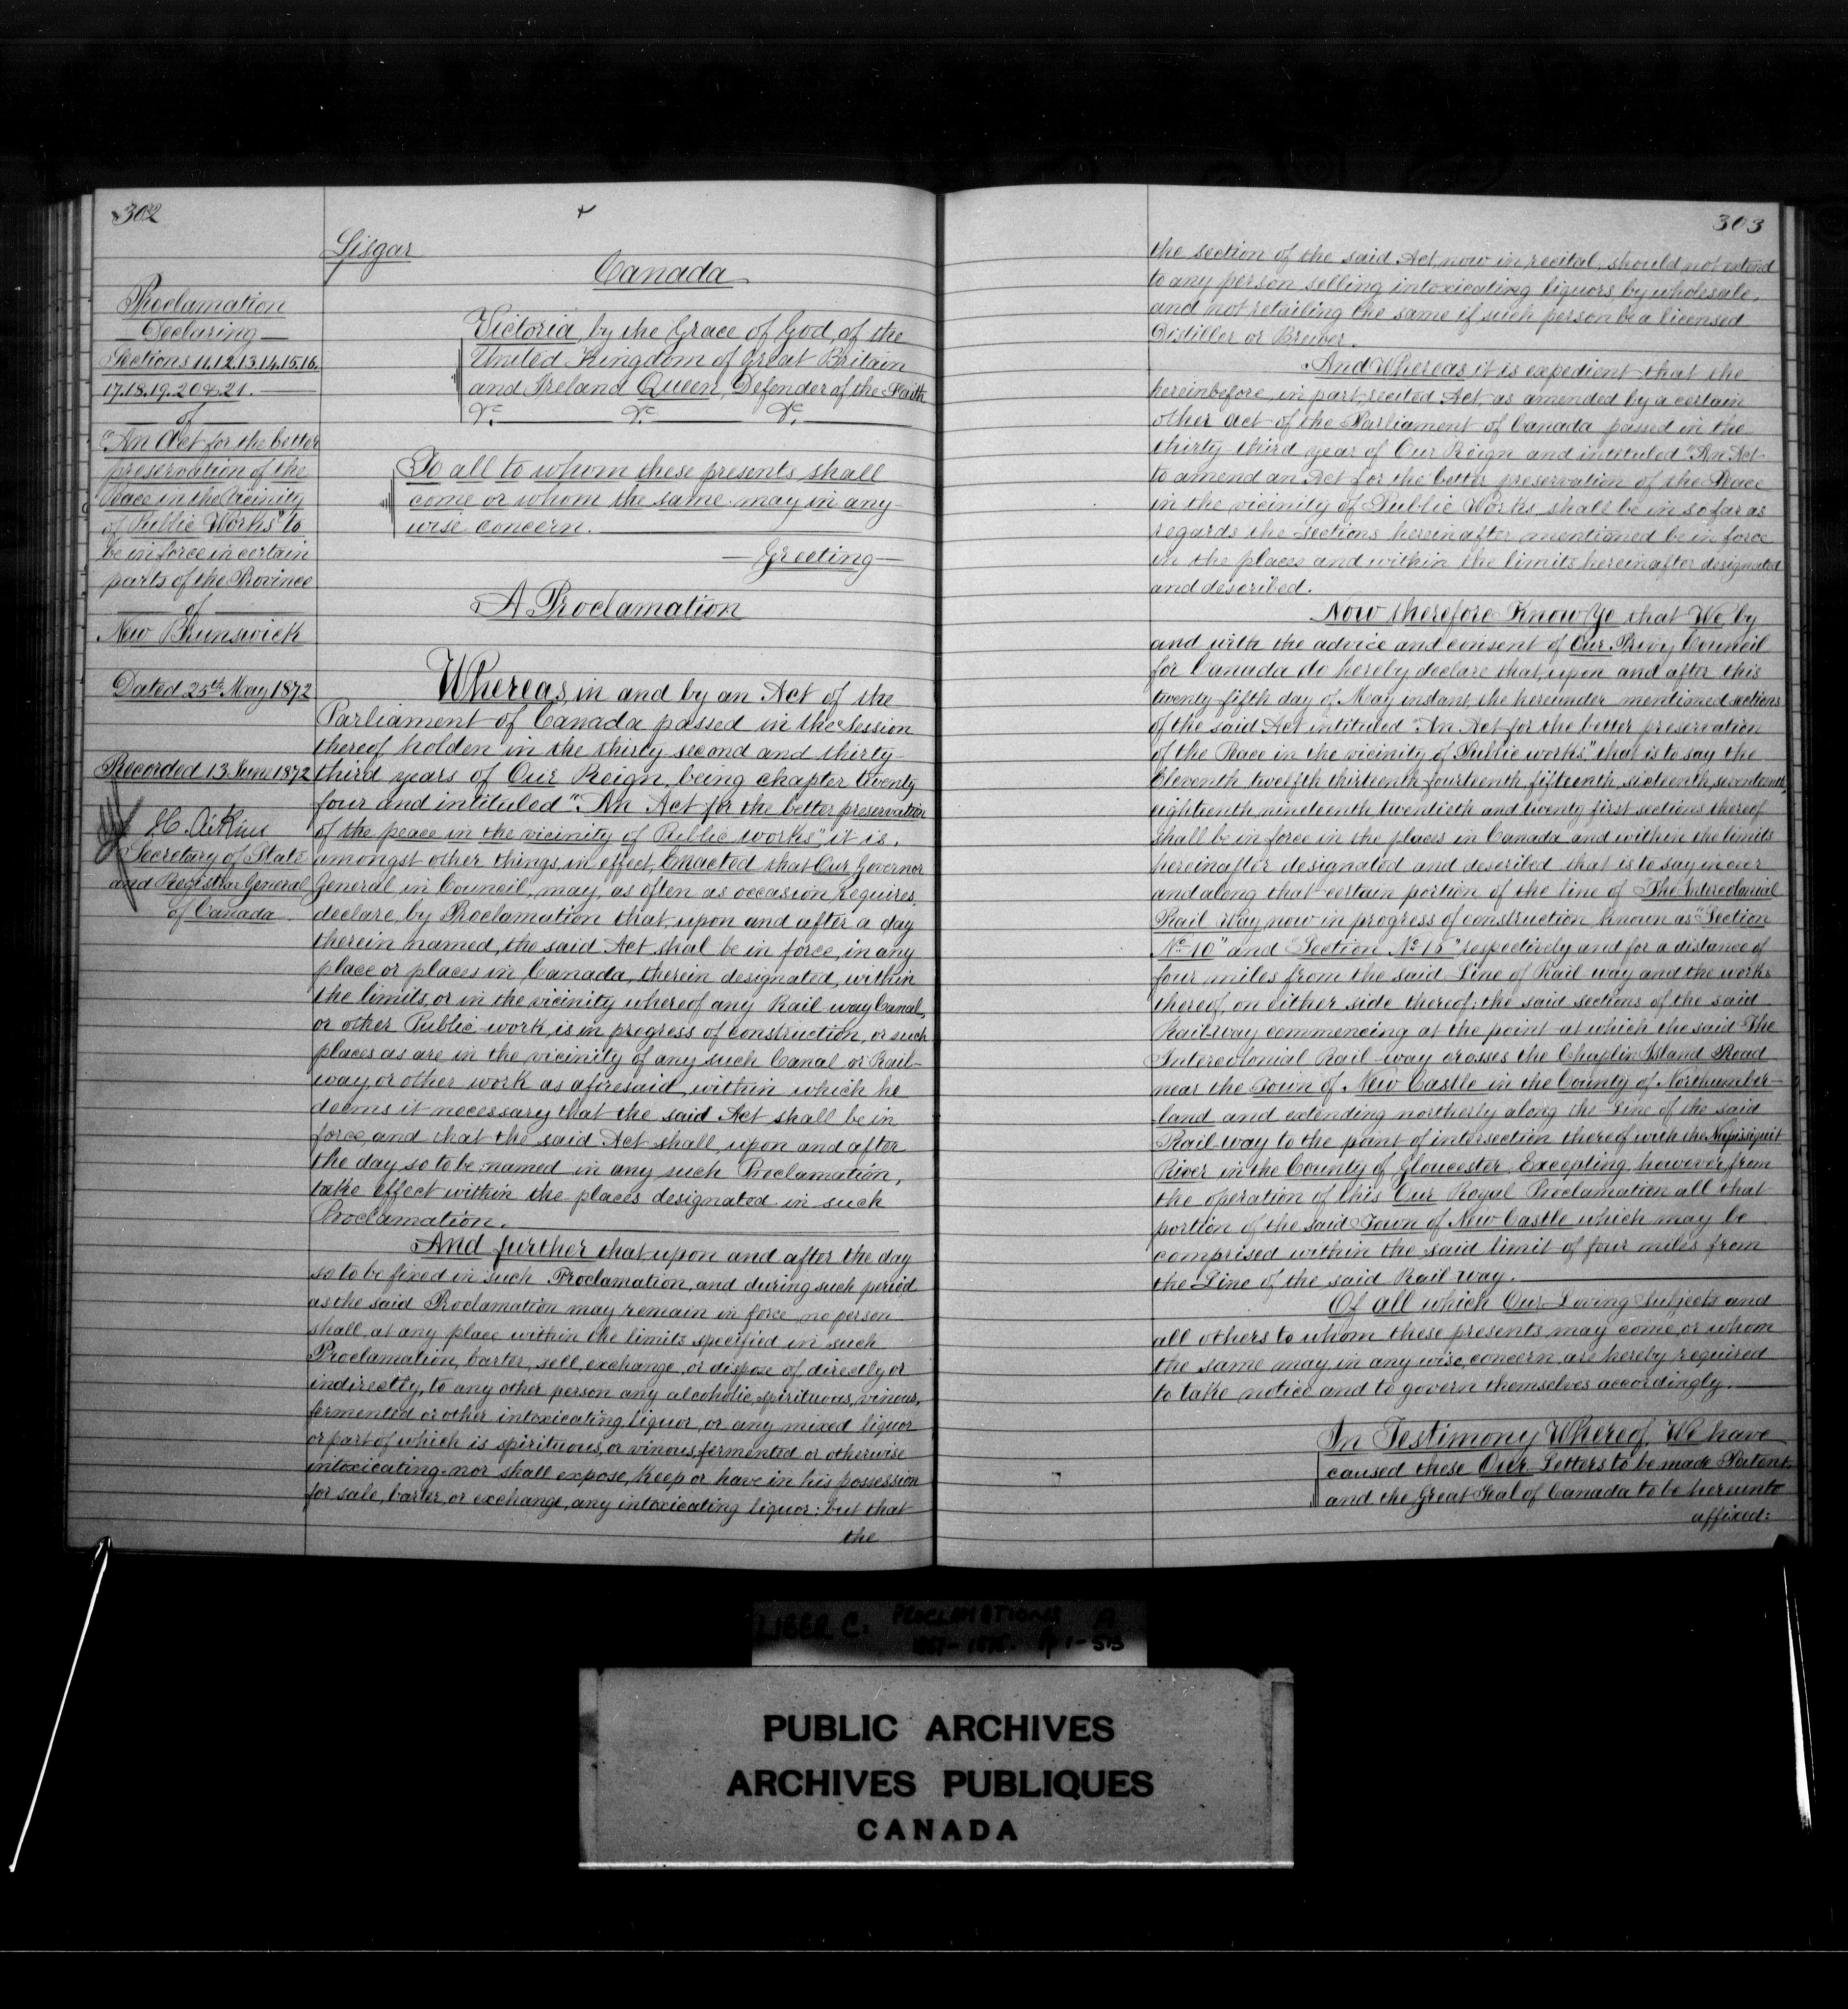 302
Lisgar
Canada
Proclamation
Declaring
Sections 11.12.13.14.15.16.
17.18.19.20 & 21.
of
"An Act for the better
preservation of the
Peace in the Vicinity
of Public Works" to
be in force in certain
parts of the Province
of
New Brunswick
Dated 25th May 1872
Recorded 13 June 1872
J.C. Aikins
Secretary of State
and Registrar General
of Canada.
Victoria, by the Grace of God, of the
United Kingdom of Great Britain
and Ireland Queen, Defender of the Faith
&c. &c. &c.
To all to whom these presents shall
come or whom the same may in any
wise concern.
Greeting
A Proclamation
Whereas, in and by an Act of the
Parliament of Canada passed in the Session
thereof holden in the thirty second and thirty
third years of Our Reign, being chapter twenty
four and intituled "An Act for the better preservation
of the peace in the vicinity of Public works", it is,
amongst other things, in effect, Enacted that Our Governor
General in Council, may, as often as occasion requires,
declare, by Proclamation that, upon and after a day
therein named, the said Act shal be in force, in any
place or places in Canada, therein designated, within
the limits, or in the vicinity whereof any Rail way Canal,
or other Public work, is in progress of construction, or such
places as are in the vicinity of any such Canal or Rail-
way, or other work as aforesaid, within which he
deems it necessary that the said Act shall be in
force, and that the said Act shall, upon and after
the day so to be named in any such Proclamation,
take effect within the places designated in such
Proclamation.
And further that, upon and after the day
so to be fixed in such Proclamation, and during such period
as the said Proclamation may remain in force, no person
shall, at any place within the limits specified in such
Proclamation, barter, sell, exchange, or dispose of directly or
indirectly, to any other person any alcoholic, spirituous, vinous,
fermented or other intoxicating liquor, or any mixed liquor
or part of which is spirituous, or vinous, fermented or otherwise
intoxicating, nor shall expose, keep or have in his possession
for sale, barter, or exchange, any intoxicating liquor: but that
the
303
the section of the said Act, now in recital, should not extend
to any person selling intoxicating liquors by wholesale,
and not retailing the same if such person be a licensed
Distiller or Brewer.
And Whereas it is expedient that the
hereinbefore, in part, recited Act, as amended by a certain
other act of the Parliament of Canada passed in the
thirty third year of Our Reign and intituled "An Act
to amend an Act for the better preservation of the Peace
in the vicinity of Public Works, shall be in so far as
regards the sections hereinafter mentioned be in force
in the places and within the limits hereinafter designated
and described.
Now therefore Know Ye that We, by
and with the advice and consent of Our Privy Council
for Canada do hereby declare that, upon and after this
twenty-fifth day of May instant, the hereunder mentioned sections
of the said Act intituled "An Act for the better preservation
of the Peace in the vicinity of Public works", that is to say the
Eleventh, twelfth, thirteenth, fourteenth, fifteenth, sixteenth, seventeenth,
eighteenth, nineteenth, twentieth and twenty first sections thereof
shall be in force in the places in Canada and within the limits
hereinafter designated and described that is to say in over
and along that certain portion of the line of The Intercolonial
Rail Way now in progress of construction known as "Section
No. 10" and Section No. 16" respectively and for a distance of
four miles from the said Line of Rail way and the works
thereof, on either side thereof; the said sections of the said
Railway commencing at the point at which the said The
Intercolonial Rail-way crosses the Chaplin Island Road
near the Town of New Castle in the County of Northumber-
land and extending northerly along the Line of the said
Rail way to the point of intersection thereof with the Nepissiguit
River in the County of Gloucester, Excepting, however, from
the operation of this Our Royal Proclamation all that
portion of the said Town of New Castle which may be
comprised within the said limit of four miles from
the Line of the said Rail way.
Of all which Our Loving Subjects and
all others to whom these presents may come, or whom
the same may in any wise, concern, are hereby required
to take notice and to govern themselves accordingly.
In Testimony Whereof, We have
caused these Our Letters to be made Patent,
and the Great Seal of Canada to be hereunto
affixed:
LIBER C. PROCLAMATIONS A
1867-18 1-513
PUBLIC ARCHIVES
ARCHIVES PUBLIQUES
CANADA